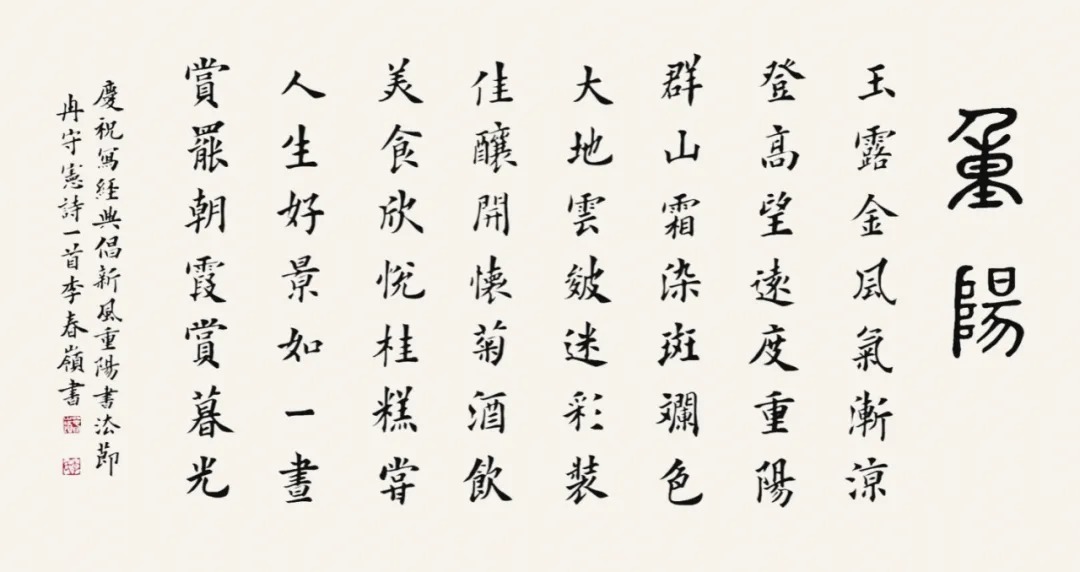 重陽
玉露金風氣漸涼
登高望遠度重陽
群山霜染斑斕色
大地雲皴迷彩裝
佳釀開懷菊酒飲
美食欣悅桂糕嘗
人生好景如一畫
賞罷朝霞賞暮光
慶祝寫經典倡新風重陽書法節
冉守憲詩一首李春嶺書